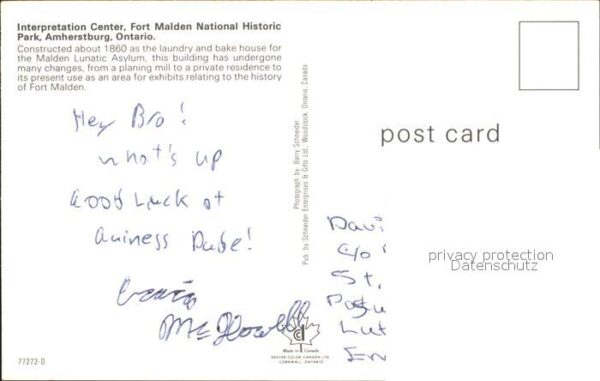 Interpretation Center, Fort Malden National Historic
Park, Amherstburg, Ontario.
Constructed about 1860 as the laundry and bake house for
the Malden Lunatic Asylum, this building has undergone
many changes, from a planing mill to a private residence to
its present use as an area for exhibits relating to the history
of Fort Malden.
Hey Bro!
what's up
Good Luck at
Guiness Dude!
Craig
77272-D
Photograph by Barry Schneider
Pub. by Schneider Enterprises & Gifts Ltd, Woodstock, Ontario, Canada
Made in Canada
DEXTER COLOR CANADA LTD.
CORNWALL, ONTARIO
post card
privacy protection
Datenschutz
Davi
c/o
St.
Lut